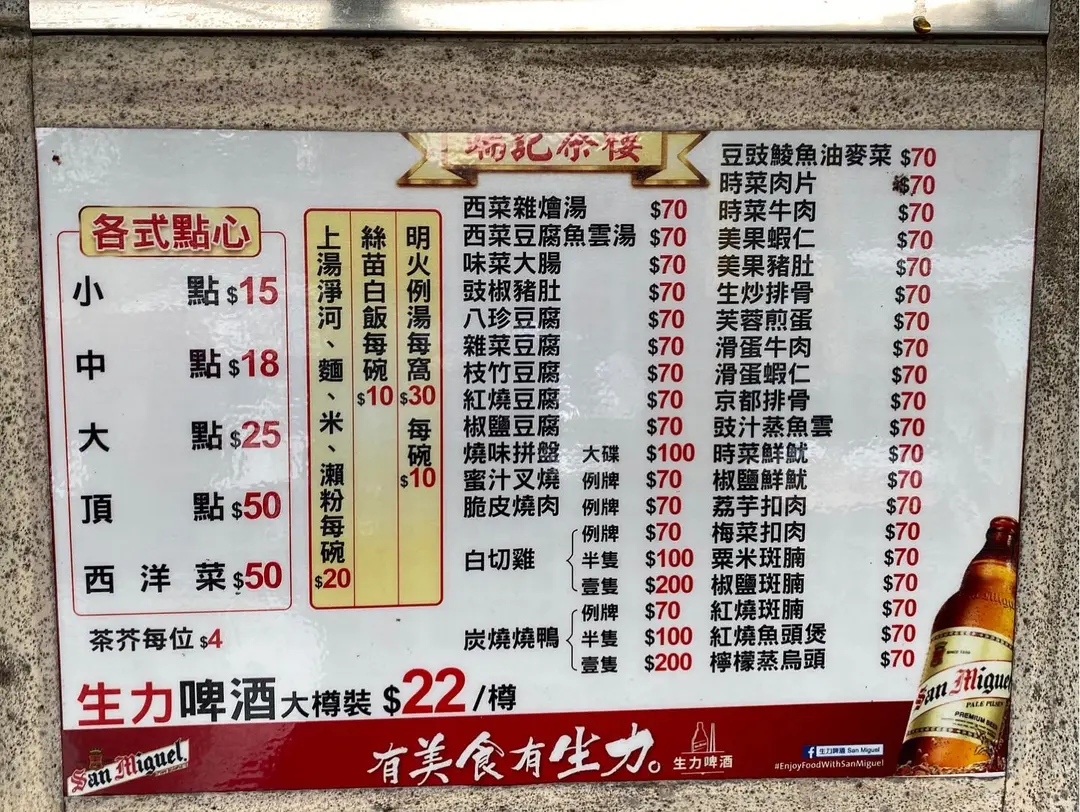 端記茶樓
各式點心
小點 $15
中點 $18
大點 $25
頂點 $50
西洋菜 $50
茶芥每位 $4
上湯淨河、麵、米、瀨粉每碗 $20
絲苗白飯每碗 $10
明火例湯每窩 $30 每碗 $10
西菜雜燴湯 $70
西菜豆腐魚雲湯 $70
味菜大腸 $70
豉椒豬肚 $70
八珍豆腐 $70
雜菜豆腐 $70
枝竹豆腐 $70
紅燒豆腐 $70
椒鹽豆腐 $70
燒味拼盤 大碟 $100
蜜汁叉燒 例牌 $70
脆皮燒肉 例牌 $70
白切雞
例牌 $70
半隻 $100
壹隻 $200
炭燒燒鴨
例牌 $70
半隻 $100
壹隻 $200
豆豉鯪魚油麥菜 $70
時菜肉片 $70
時菜牛肉 $70
美果蝦仁 $70
美果豬肚 $70
生炒排骨 $70
芙蓉煎蛋 $70
滑蛋牛肉 $70
滑蛋蝦仁 $70
京都排骨 $70
豉汁蒸魚雲 $70
時菜鮮魷 $70
椒鹽鮮魷 $70
荔芋扣肉 $70
梅菜扣肉 $70
粟米斑腩 $70
椒鹽斑腩 $70
紅燒斑腩 $70
紅燒魚頭煲 $70
檸檬蒸烏頭 $70
生力啤酒大樽裝 $22/樽
San Miguel
有美食有生力。
生力啤酒
生力啤酒 San Miguel
#EnjoyFoodWithSanMiguel
San Miguel
PALE PILSEN
PREMIUM BEER